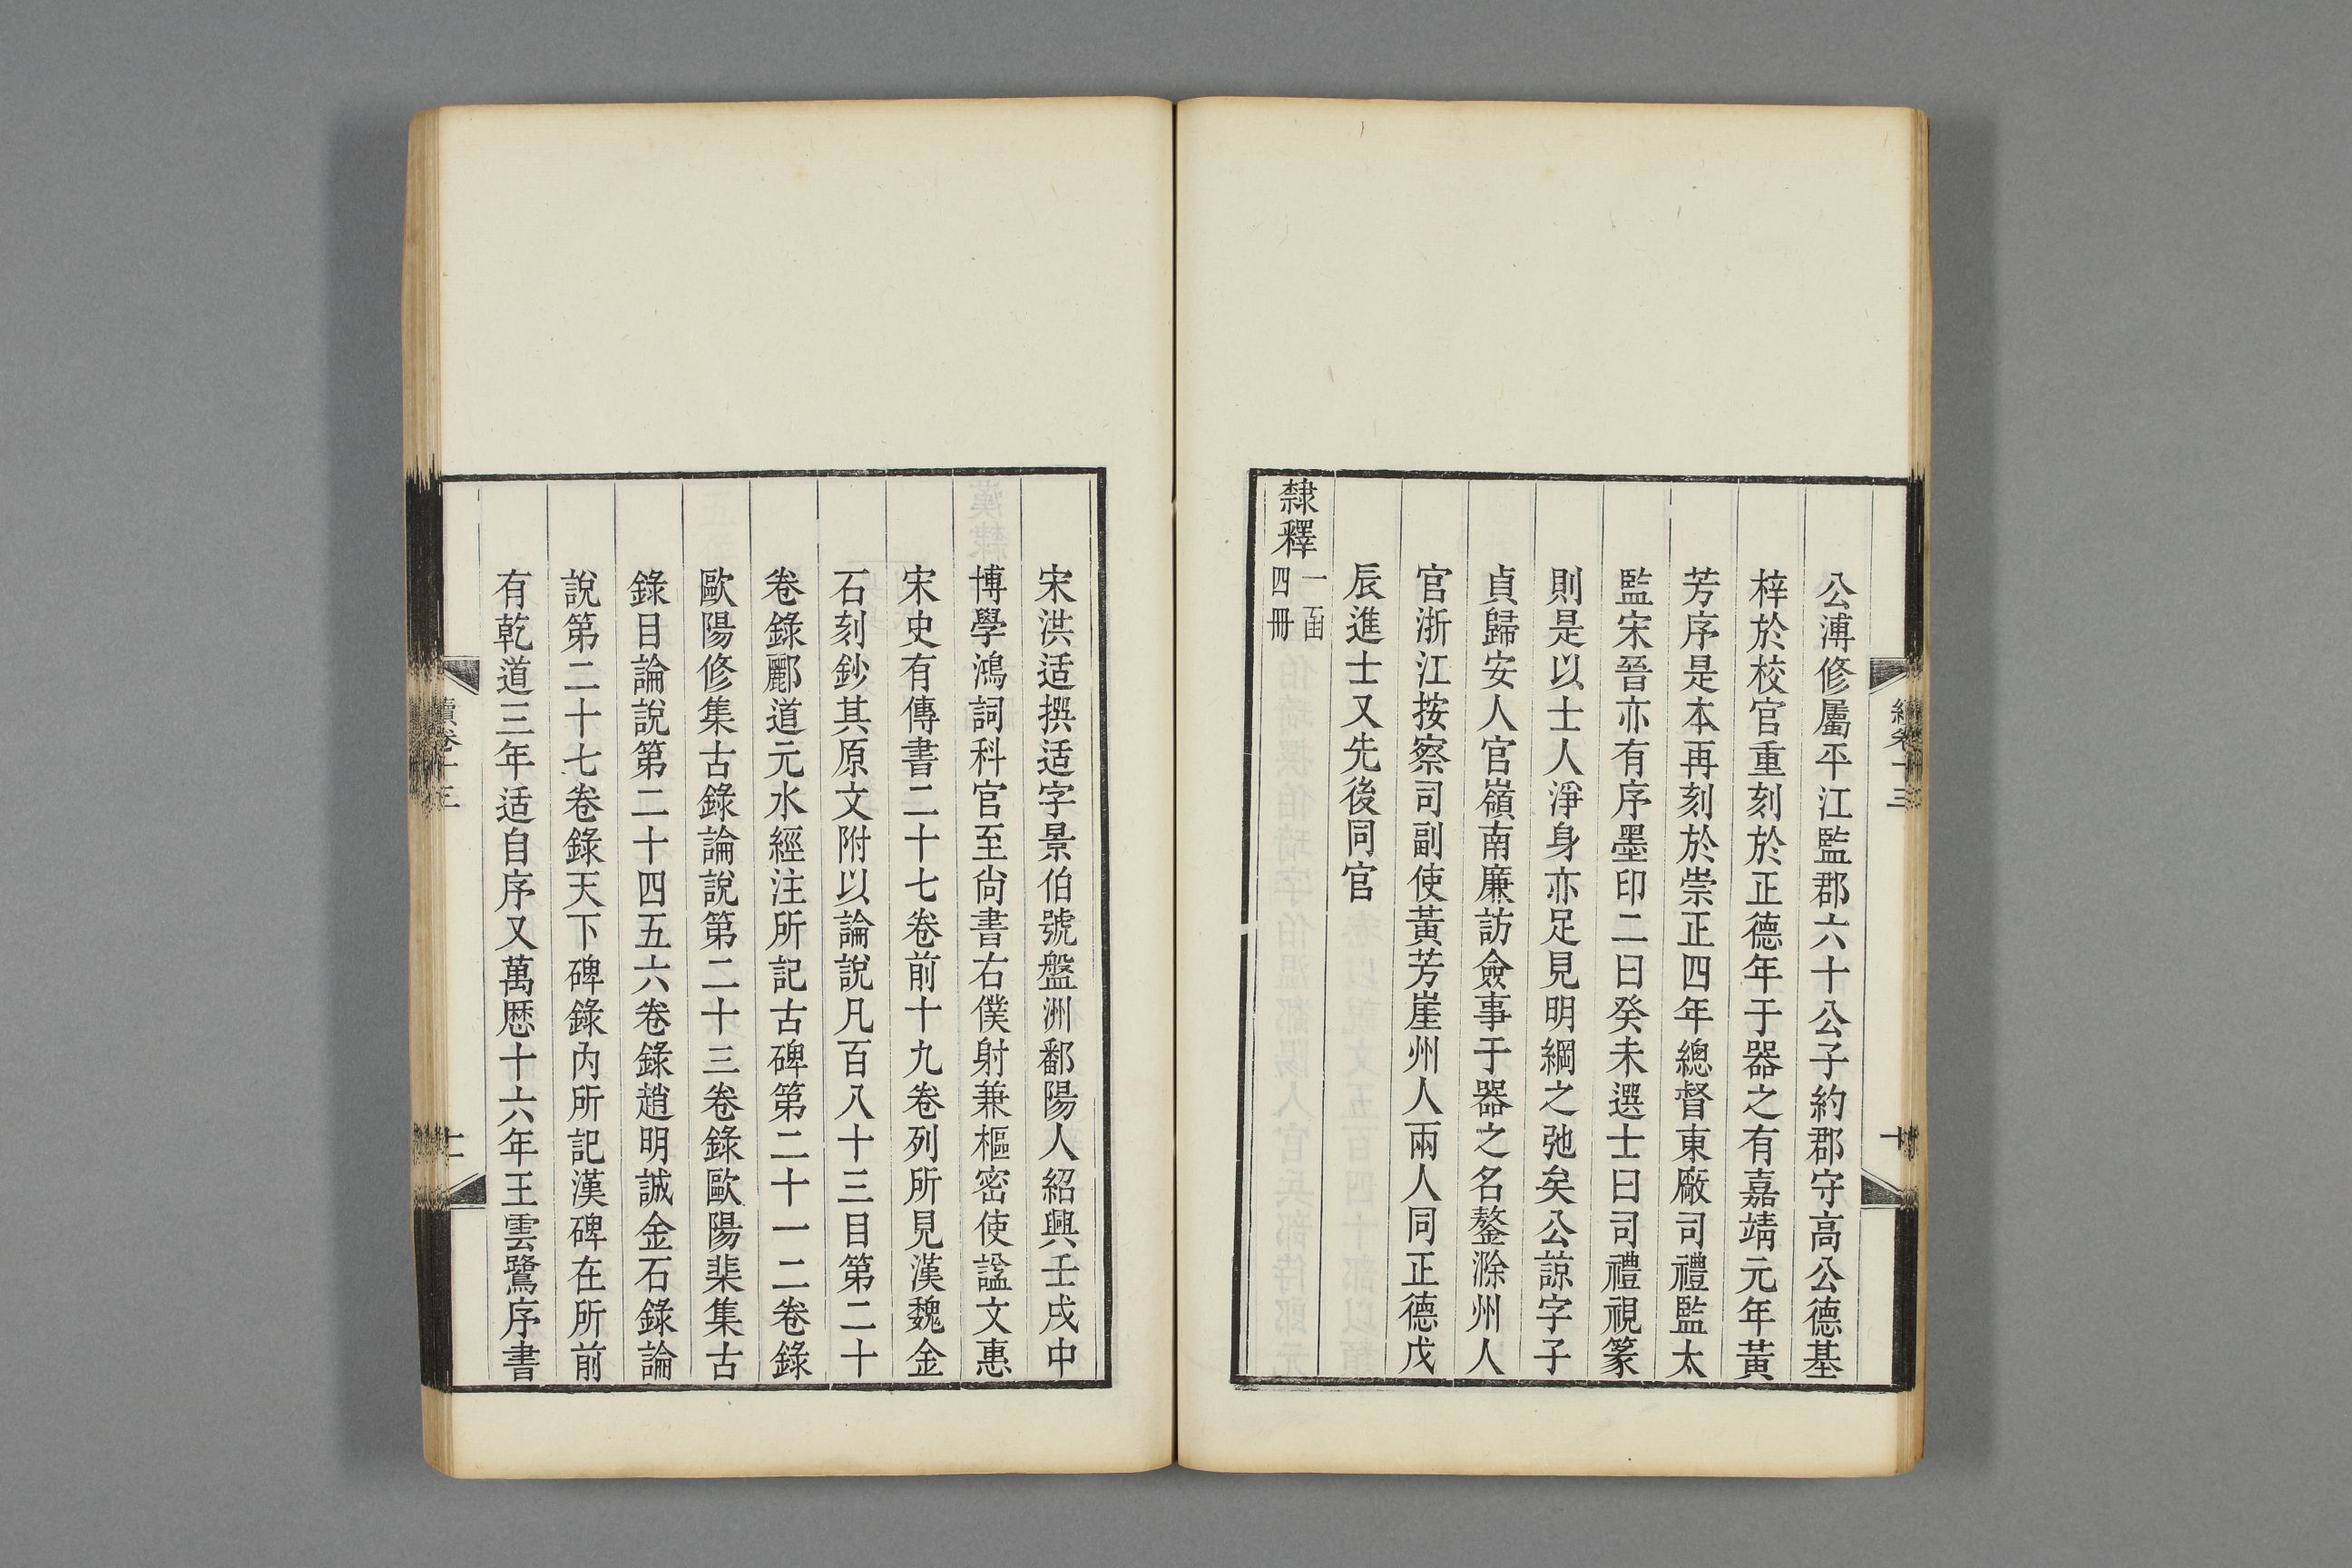 公溥修屬平江監郡六十公子約郡守高公德基
梓於校官重刻於正德年于器之有嘉靖元年黃
芳序是本再刻於崇正四年總督東廠司禮監太
監宋晉亦有序墨印二曰癸未選士曰司禮視篆
則是以士人淨身亦足見明綱之弛矣公諒字子
貞歸安人官嶺南廉訪僉事于器之名鏊滁州人
官浙江按察司副使黃芳崖州人兩人同正德戊
辰進士又先後同官
隸釋一函四冊
宋洪适撰适字景伯號盤洲鄱陽人紹興壬戌中
博學鴻詞科官至尚書右僕射兼樞密使諡文惠
宋史有傳書二十七卷前十九卷列所見漢魏金
石刻鈔其原文附以論說凡百八十三目第二十
卷錄酈道元水經注所記古碑第二十一二卷錄
歐陽修集古錄論說第二十三卷錄歐陽棐集古
錄目論說第二十四五六卷錄趙明誠金石錄論
說第二十七卷錄天下碑錄內所記漢碑在所前
有乾道三年适自序又萬歷十六年王雲鷺序書
續卷十三